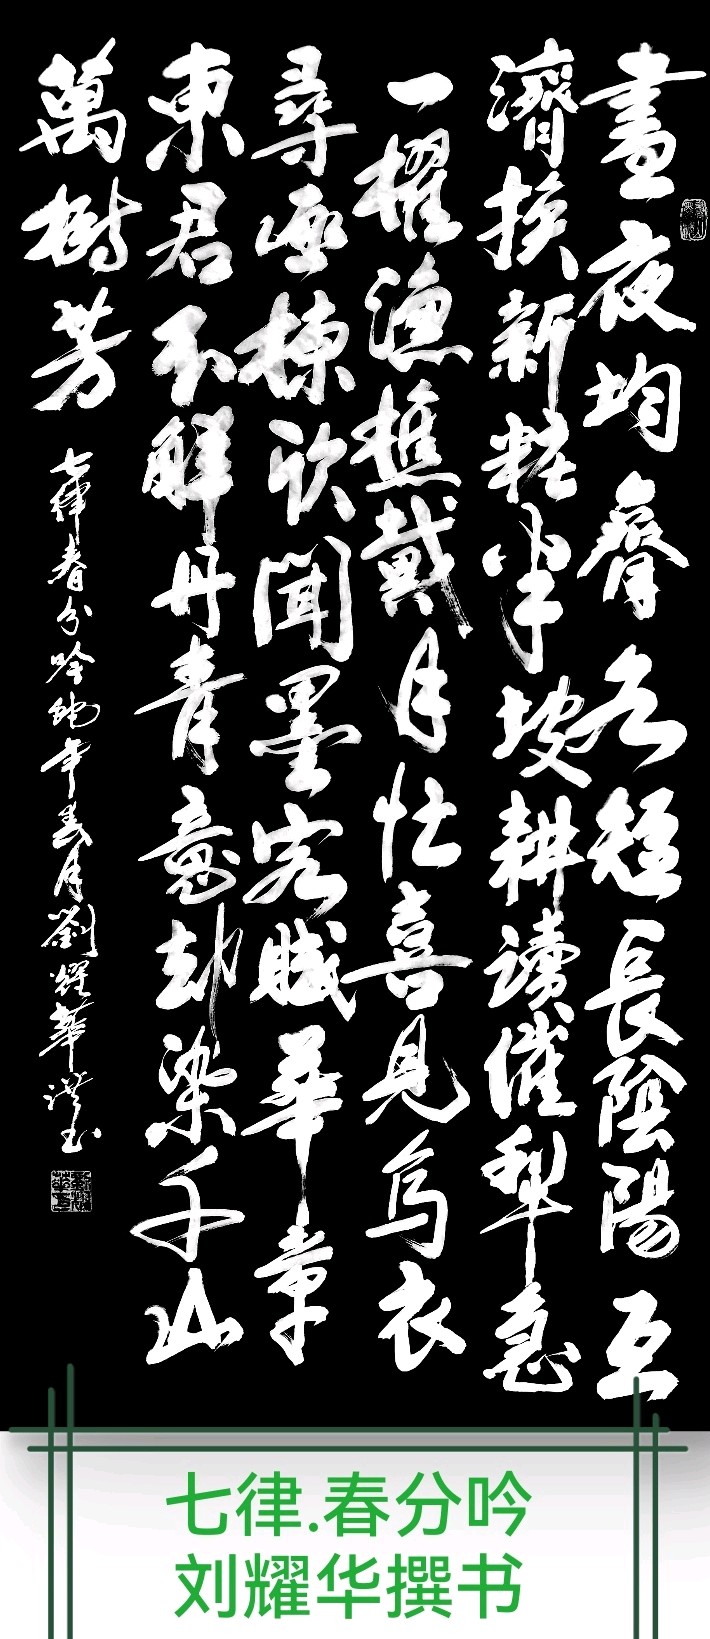 晝夜均齊短長陰陽互
濟換新粧半坡耕讀催犁急
一櫂漁樵戴月忙喜見烏衣
尋畫棟欣聞墨客賦華章
東君不解丹青意却染千山
萬樹芳
七律春分吟蛇年春月劉耀華撰书
七律.春分吟
刘耀华撰书